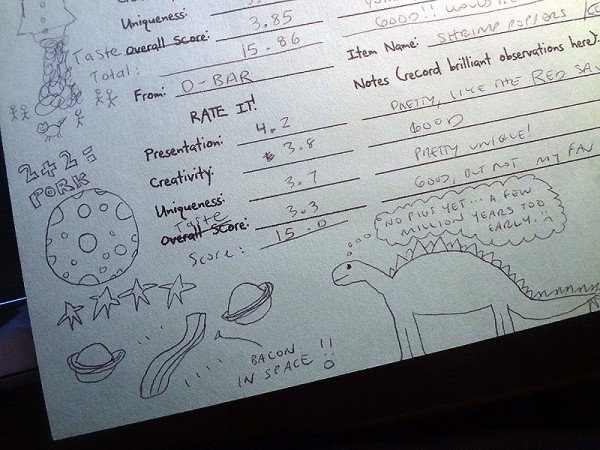 Uniqueness: 3.85 GOOD!!
Taste Overall Score: 15.86
Total:
Item Name: SHRIMP POPPERS
From: D-BAR
Notes (record brilliant observations here):
RATE IT!
PRETTY, LIKE THE RED
Presentation: 4.2
GOOD
Creativity: 3.8
PRETTY UNIQUE!
Uniqueness: 3.7
GOOD, BUT NOT MY FAV
Taste
Overall Score: 3.3
Score: 15.0
2+2=
PORK
NO PIGS YET... A FEW
MILLION YEARS TOO
EARLY...
BACON
IN SPACE!!